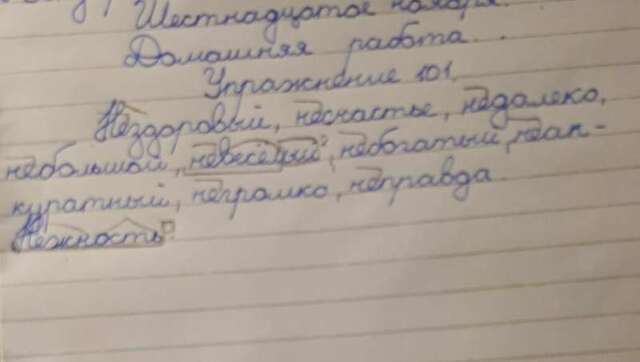 Шестнадцатое ноября.
Домашняя работа.
Упражнение 101.
Нездоровый, несчастье, недалеко,
небольшой, невесёлый, небогатый, неак-
куратный, негромко, неправда.
Нежность.